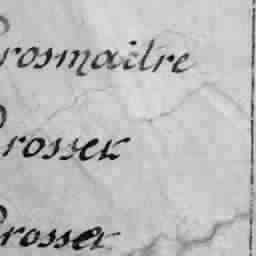 rosmaitre
rosser
rosser